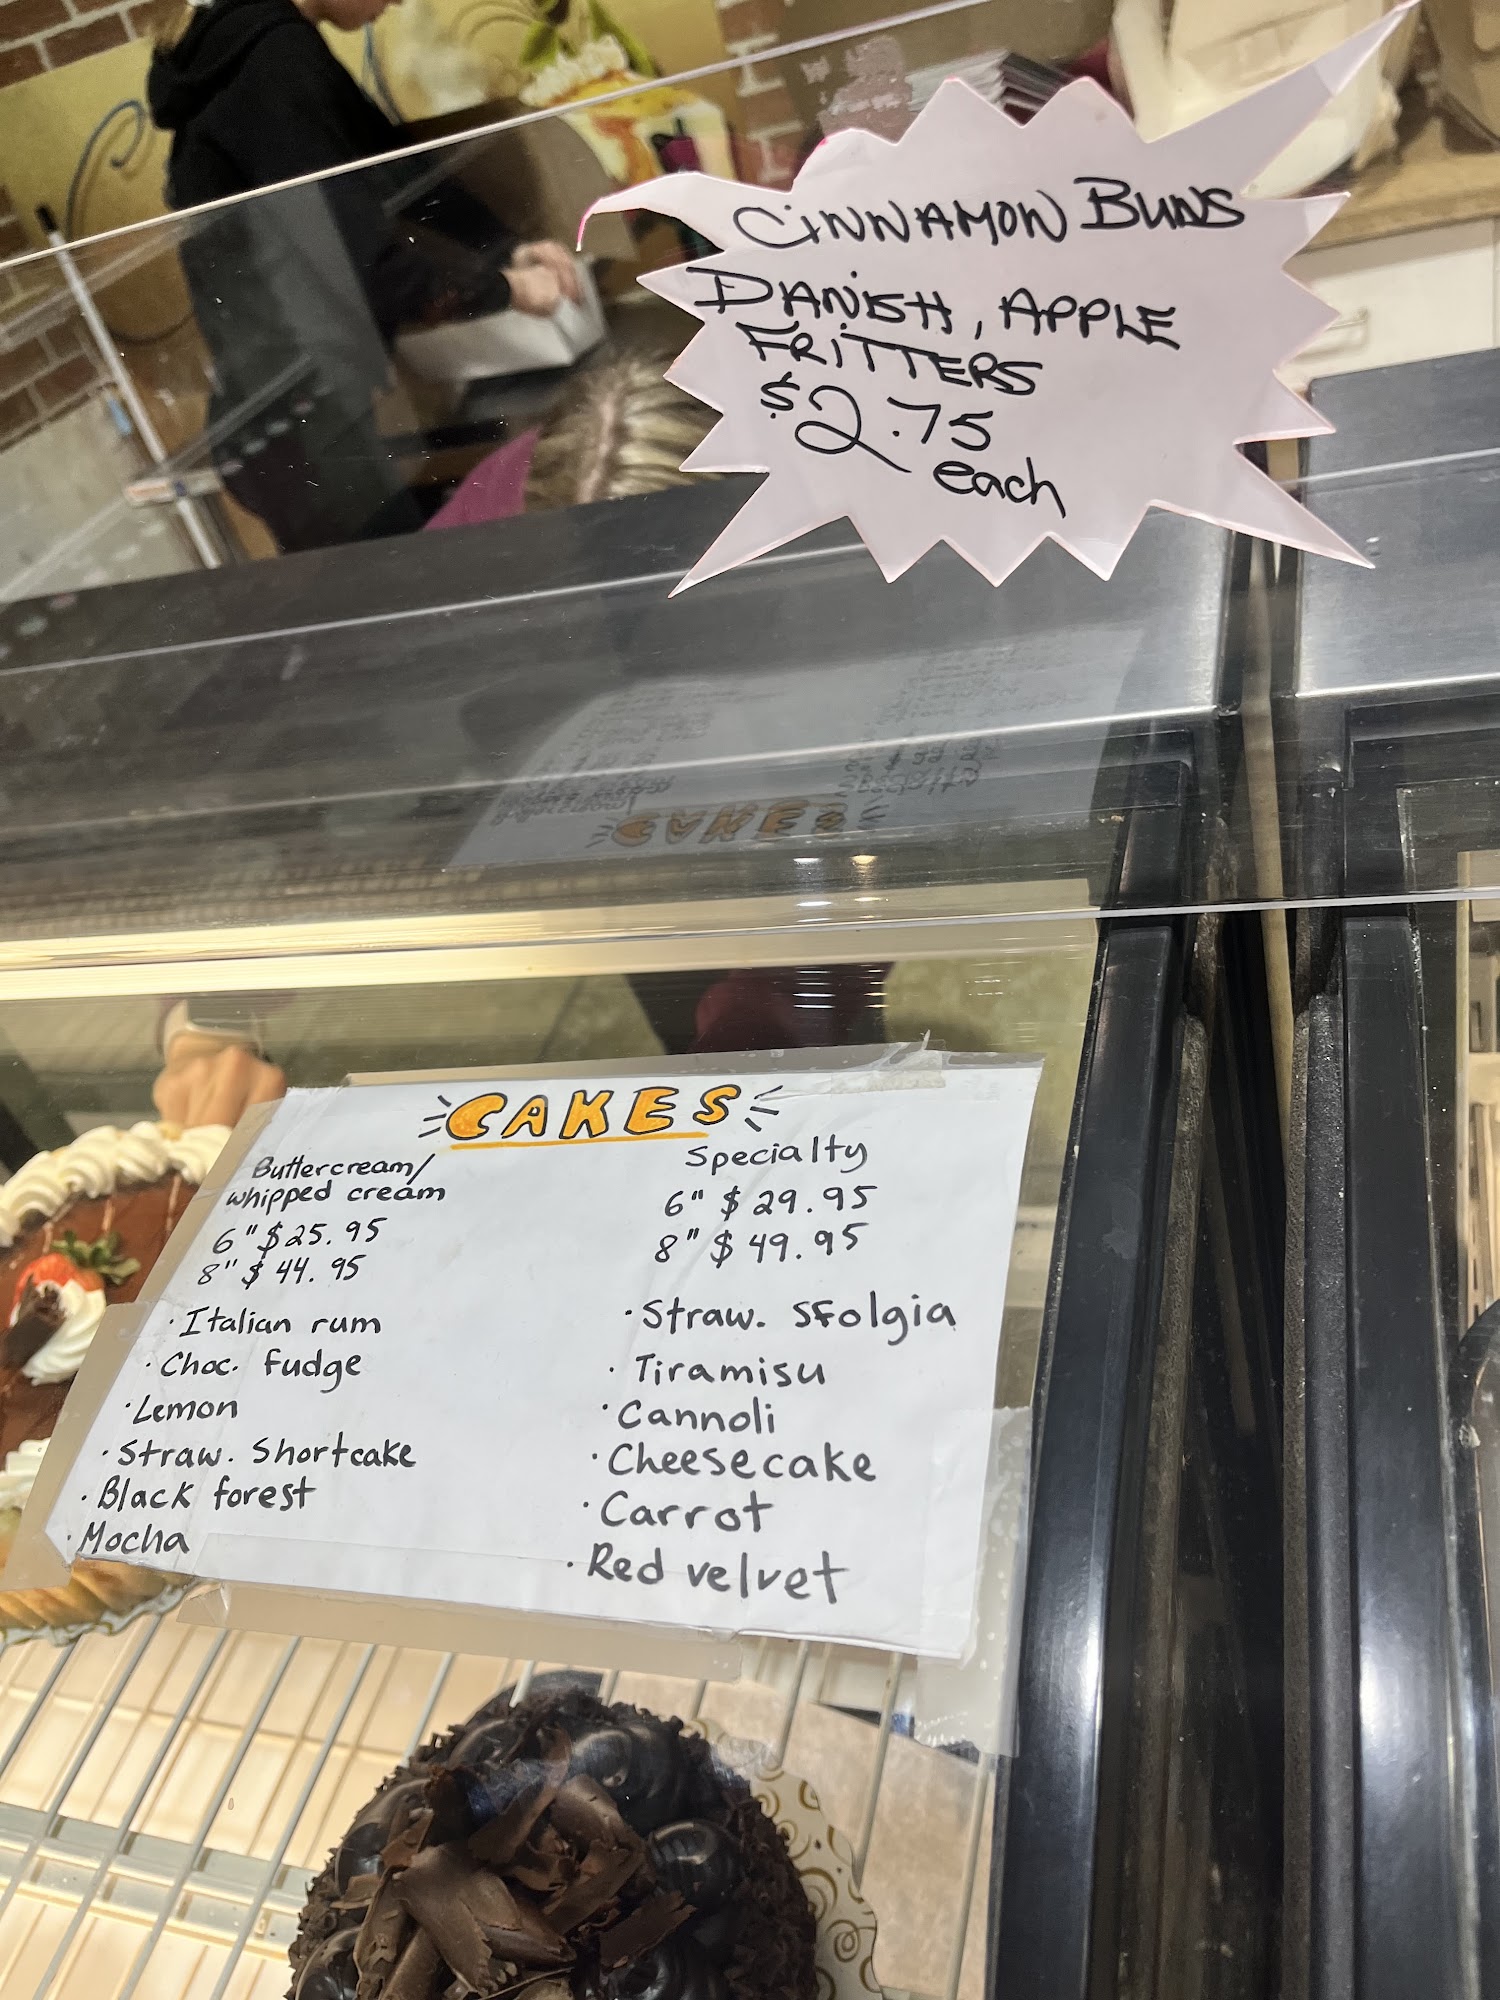 CINNAMON BUNS
DANISH, APPLE
FRITTERS
$2.75
each
CAKES
Buttercream/
whipped cream
6" $25.95
8" $44.95
· Italian rum
· Choc. fudge
· Lemon
· Straw. Shortcake
· Black forest
· Mocha
Specialty
6" $29.95
8" $49.95
· Straw. SFolgia
· Tiramisu
· Cannoli
· Cheesecake
· Carrot
· Red velvet